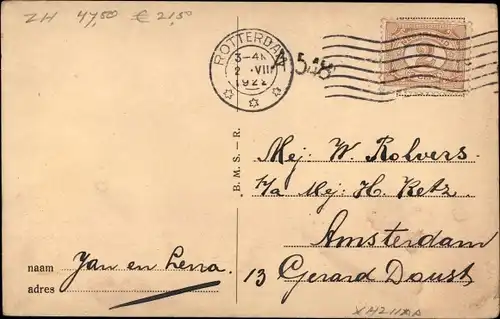 ZH 47,50 € 21,50
ROTTERDAM
3-4N
2 VII
1922
548
2
B.M.S.-R.
Mej: W. Rolvers.
p/a Mej: H. Ketz.
Amsterdam
13 Gerard Doust
naam Jan en Lena.
adres